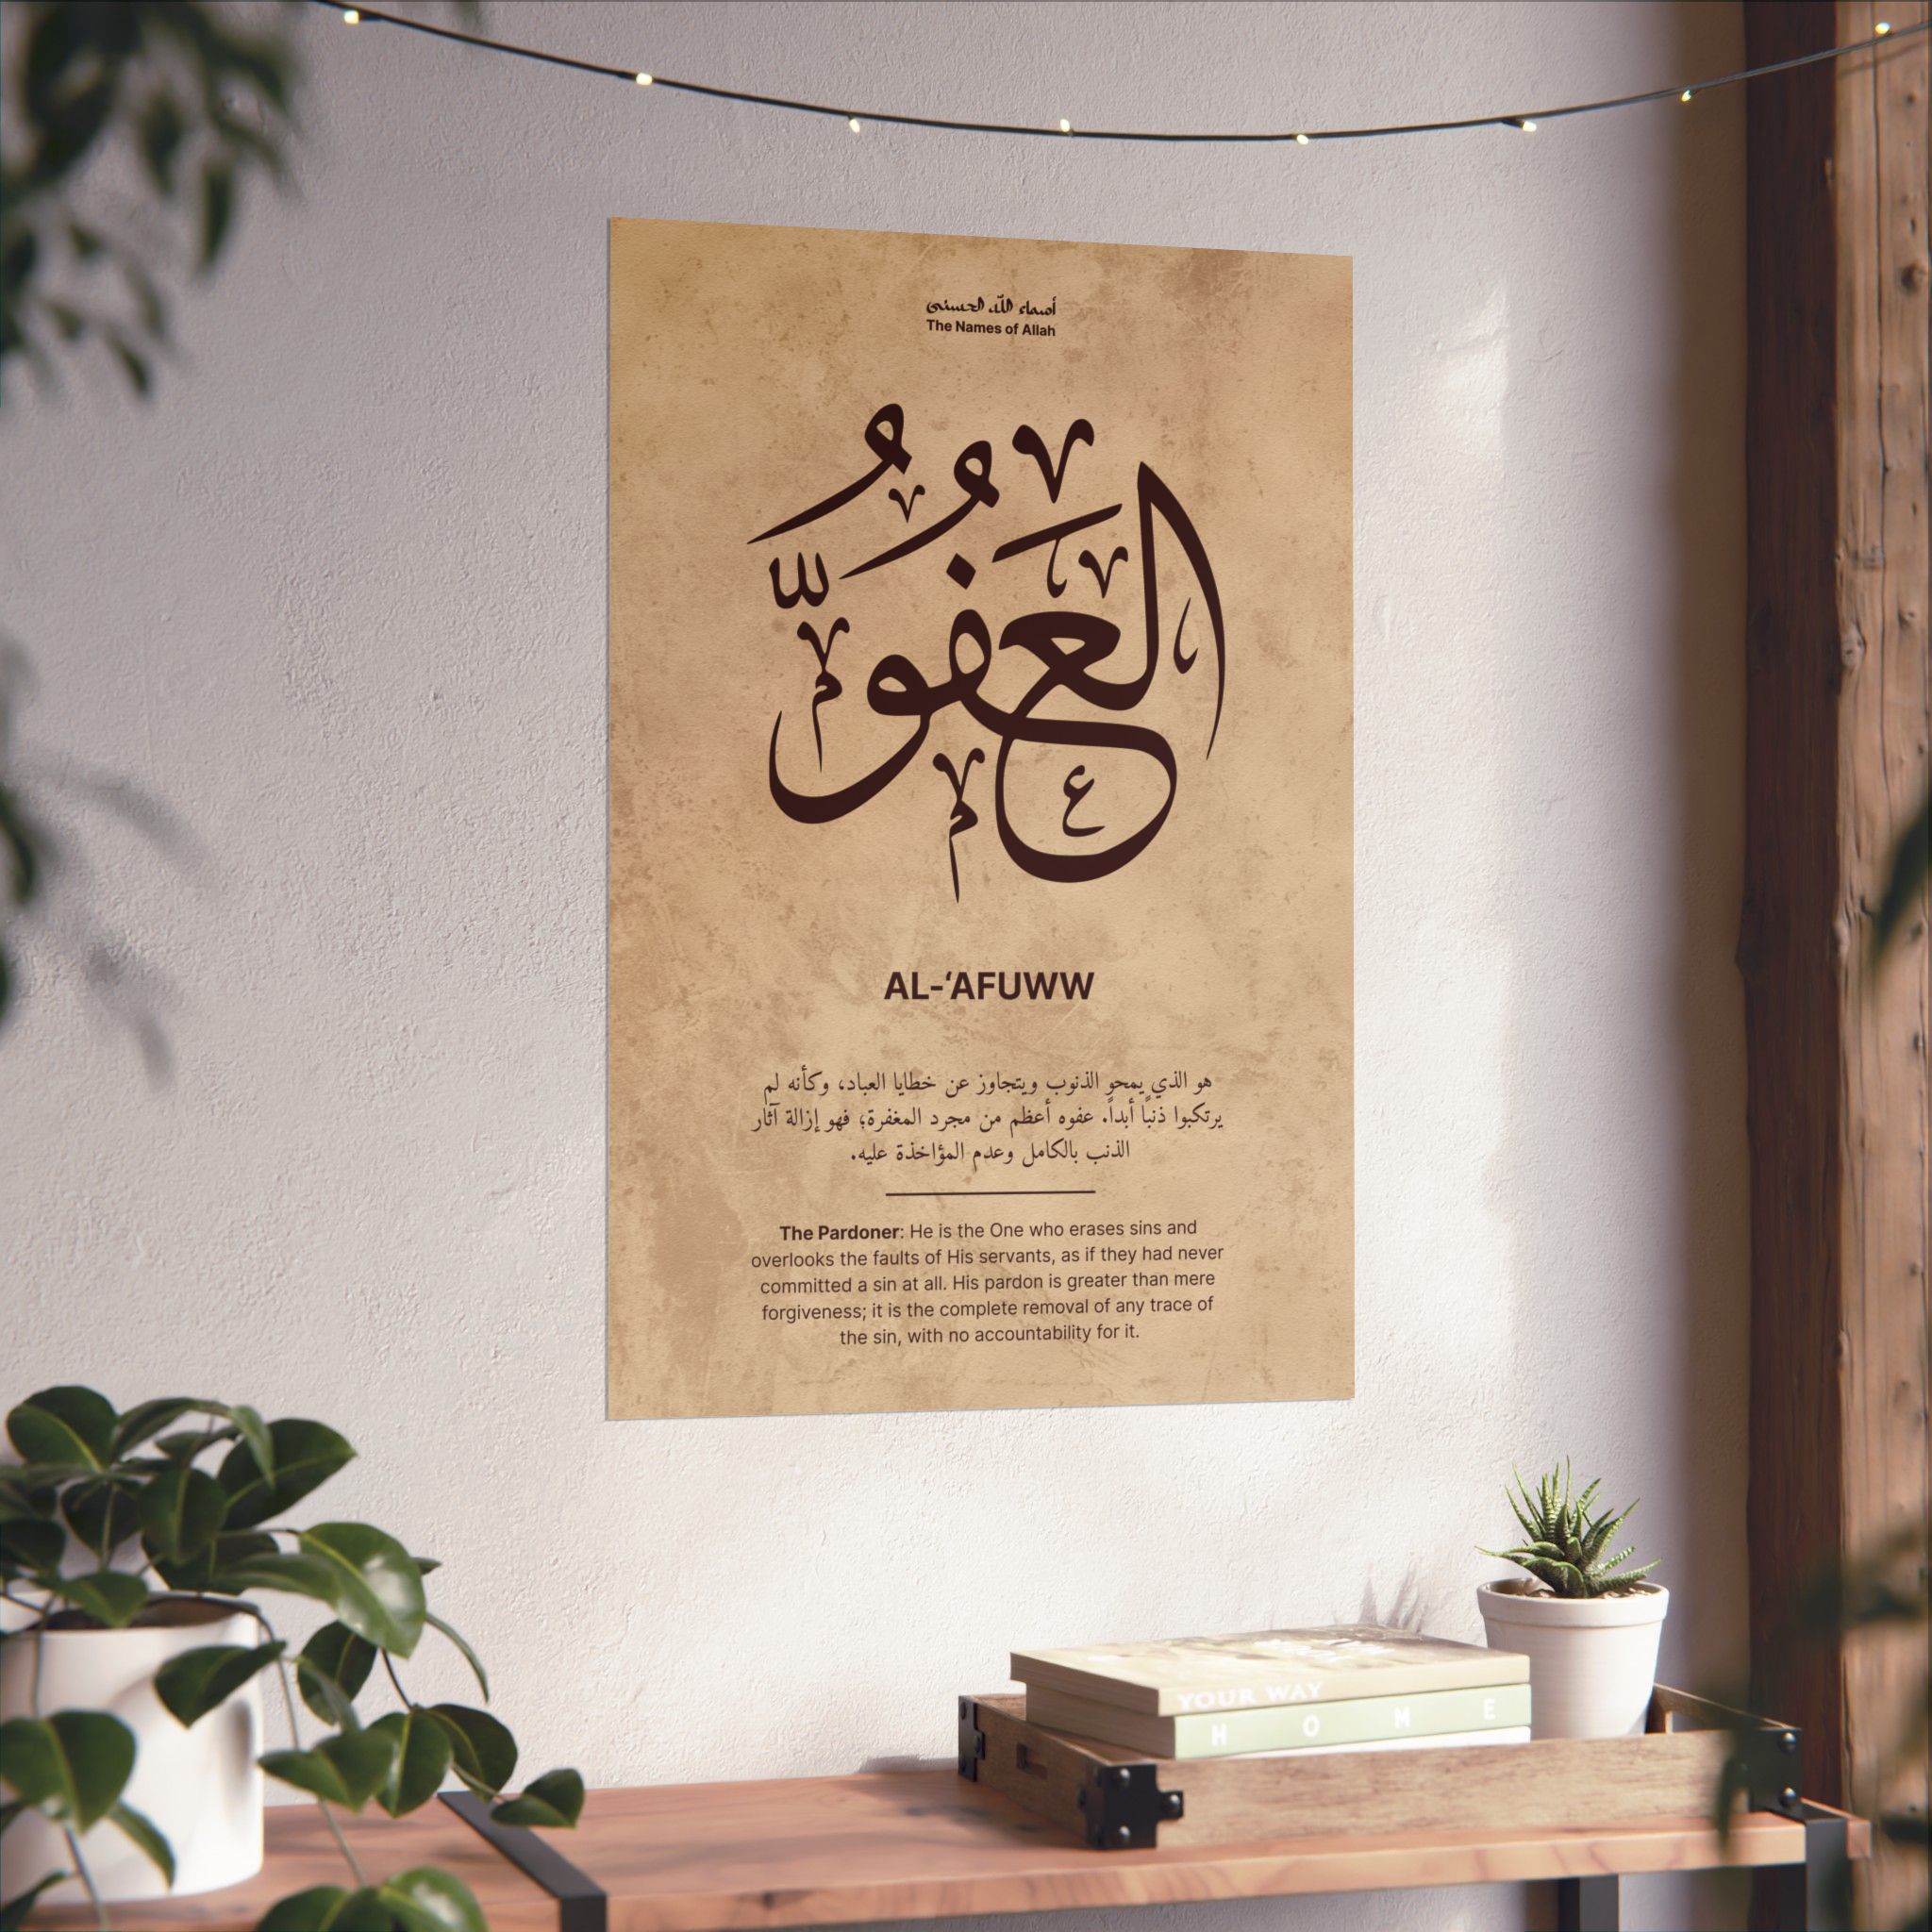 أسماء الله الحسنى
The Names of Allah
العَفُوُّ
AL-‘AFUWW
هو الذي يمحو الذنوب ويتجاوز عن خطايا العباد، وكأنه لم
يرتكبوا ذنبًا أبداً. عفوه أعظم من مجرد المغفرة؛ فهو إزالة آثار
الذنب بالكامل وعدم المؤاخذة عليه.
The Pardoner: He is the One who erases sins and
overlooks the faults of His servants, as if they had never
committed a sin at all. His pardon is greater than mere
forgiveness; it is the complete removal of any trace of
the sin, with no accountability for it.
YOUR WAY
HOME